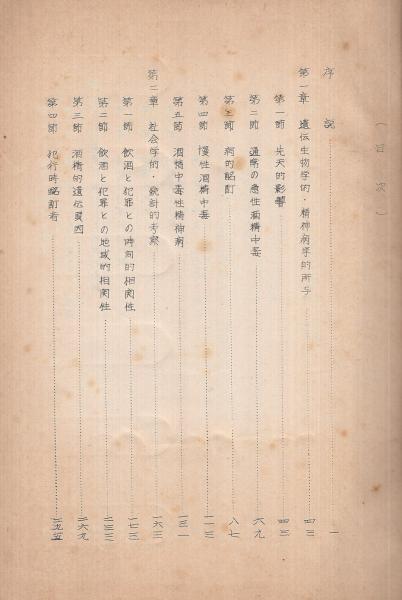 （目次）
序説 一
第一章 遺伝生物学的・精神病学的所与 四三
第一節 先天的影響 四三
第二節 通常の急性酒精中毒 六九
第三節 病的酩酊 八七
第四節 慢性酒精中毒 一一三
第五節 酒精中毒性精神病 一三一
第二章 社会学的・統計的考察 一六三
第一節 飲酒と犯罪との時間的相関性 一七三
第二節 飲酒と犯罪との地域的相関性 二三三
第三節 酒精的遺伝負因 二六九
第四節 犯行時酩酊者 二九五